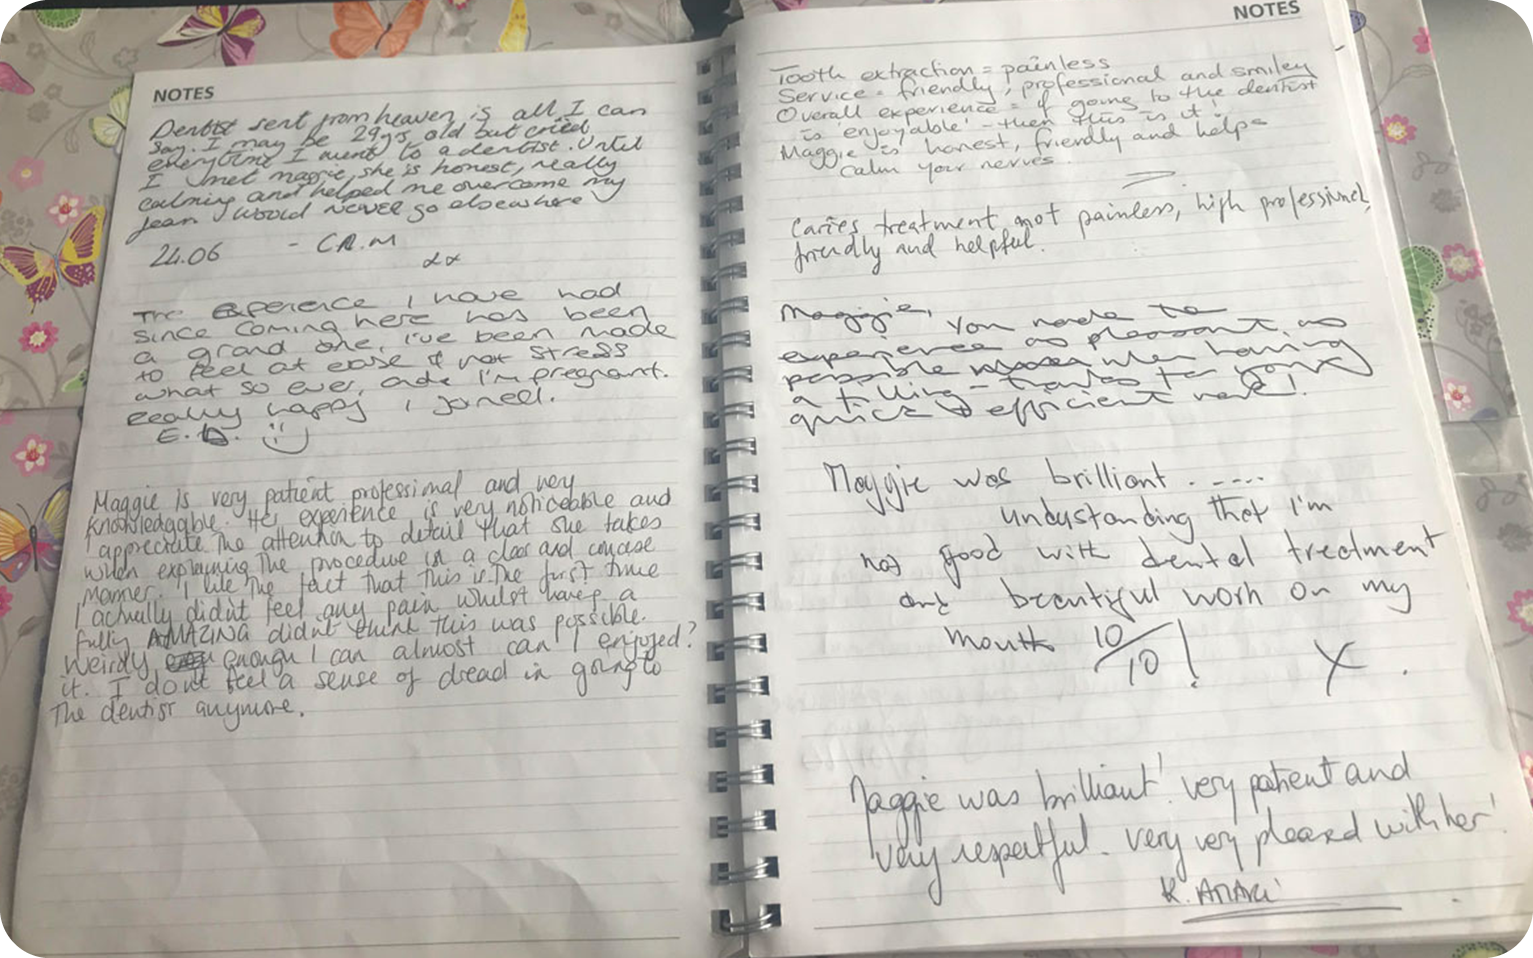 NOTES
Dentist sent from heaven is all I can
say. I may be 29yrs old but cried
everytime I went to a dentist. Until
I met maggie, she is honest, really
calming and helped me overcome my
fear. I would never go elsewhere
24.06 - CR.M
xx
The experience I have had
since coming here has been
a grand one, I've been made
to feel at ease & not stress
what so ever, and I'm pregnant.
Really happy I joined.
E.D.
Maggie is very patient professional and very
knowledgable. Her experience is very noticeable and
I appreciate the attention to detail that she takes
when explaining the procedure in a clear and concise
manner. I like the fact that this is the first time
I actually didnt feel any pain whilst having a
fulling AMAZING didnt think this was possible.
Weirdly enough I can almost can I enjoyed?
it. I dont feel a sense of dread in going to
The dentist anymore.
NOTES
Tooth extraction = painless
Service = friendly, professional and smiley
Overall experience = if going to the dentist
is 'enjoyable' - then this is it!
Maggie is honest, friendly and helps
calm your nerves.
Caries treatment not painless, high professional,
friendly and helpful.
Maggie,
You made the
experience as pleasant as
possible when having
a filling - thanks for your
quick & efficient work!
Maggie was brilliant . .....
understanding that I'm
not good with dental treatment
and beautiful work on my
mouth 10/10! X .
Maggie was brilliant! very patient and
very respectful. very very pleased with her!